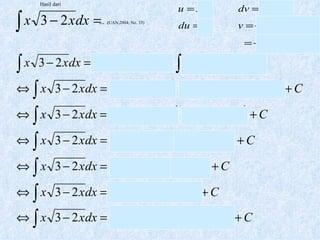 Hasil dari
∫ x √3 − 2x dx = ... (UAN,2004, No. 35)
u = dv =
du = v =
=
∫ x √3 − 2x dx = ∫
⇔ ∫ x √3 − 2x dx = + C
⇔ ∫ x √3 − 2x dx = + C
⇔ ∫ x √3 − 2x dx = + C
⇔ ∫ x √3 − 2x dx = + C
⇔ ∫ x √3 − 2x dx = + C
⇔ ∫ x √3 − 2x dx = + C